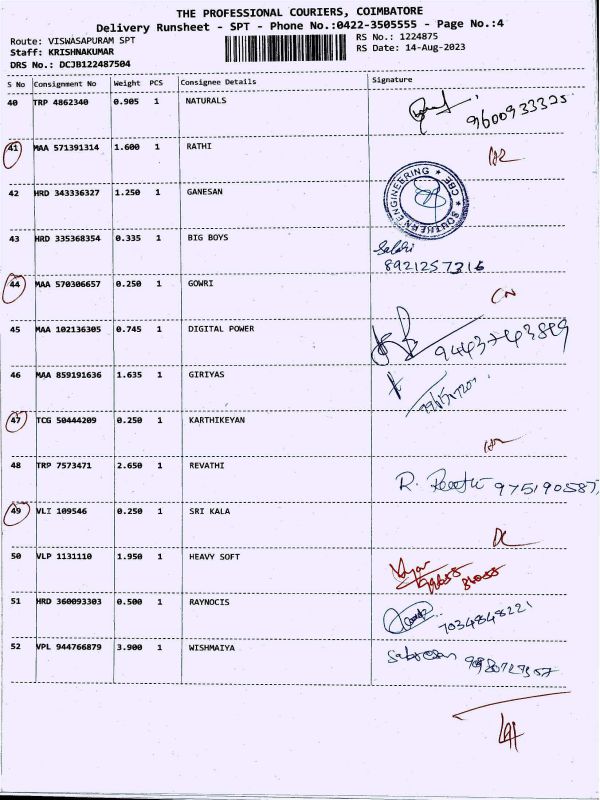 THE PROFESSIONAL COURIERS, COIMBATORE
Delivery Runsheet - SPT - Phone No.:0422-3505555 - Page No.:4
Route: VISWASAPURAM SPT RS No.: 1224875
Staff: KRISHNAKUMAR RS Date: 14-Aug-2023
DRS No.: DCJB122487504
S No Consignment No Weight PCS Consignee Details Signature
40 TRP 4862340 0.905 1 NATURALS 9600933325
41 MAA 571391314 1.600 1 RATHI
42 HRD 343336327 1.250 1 GANESAN SOUTHERN ENGINEERING ★ CBE ★
43 HRD 335368354 0.335 1 BIG BOYS
8921257316
44 MAA 570306657 0.250 1 GOWRI
45 MAA 102136305 0.745 1 DIGITAL POWER
46 MAA 859191636 1.635 1 GIRIYAS
47 TCG 50444209 0.250 1 KARTHIKEYAN
48 TRP 7573471 2.650 1 REVATHI R. 9751905877
49 VLI 109546 0.250 1 SRI KALA
50 VLP 1131110 1.950 1 HEAVY SOFT
51 HRD 360093303 0.500 1 RAYNOCIS 7034848221
52 VPL 944766879 3.900 1 WISHMAIYA